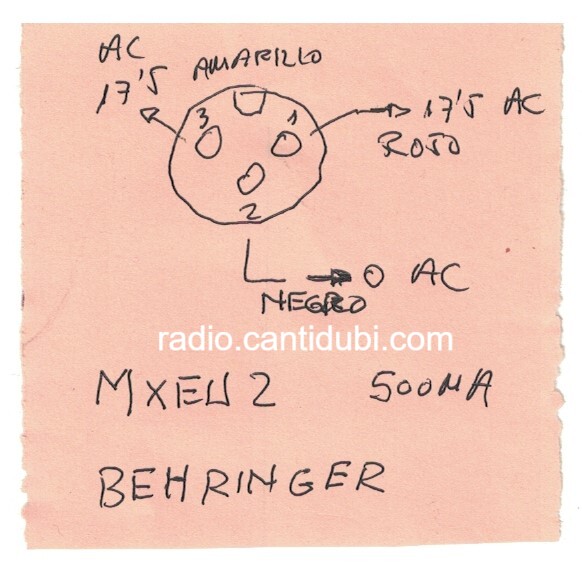 AC AMARILLO
17'5
3 1 17'5 AC
ROJO
2
0 AC
NEGRO
radio.cantidubi.com
MXEU2 500MA
BEHRINGER